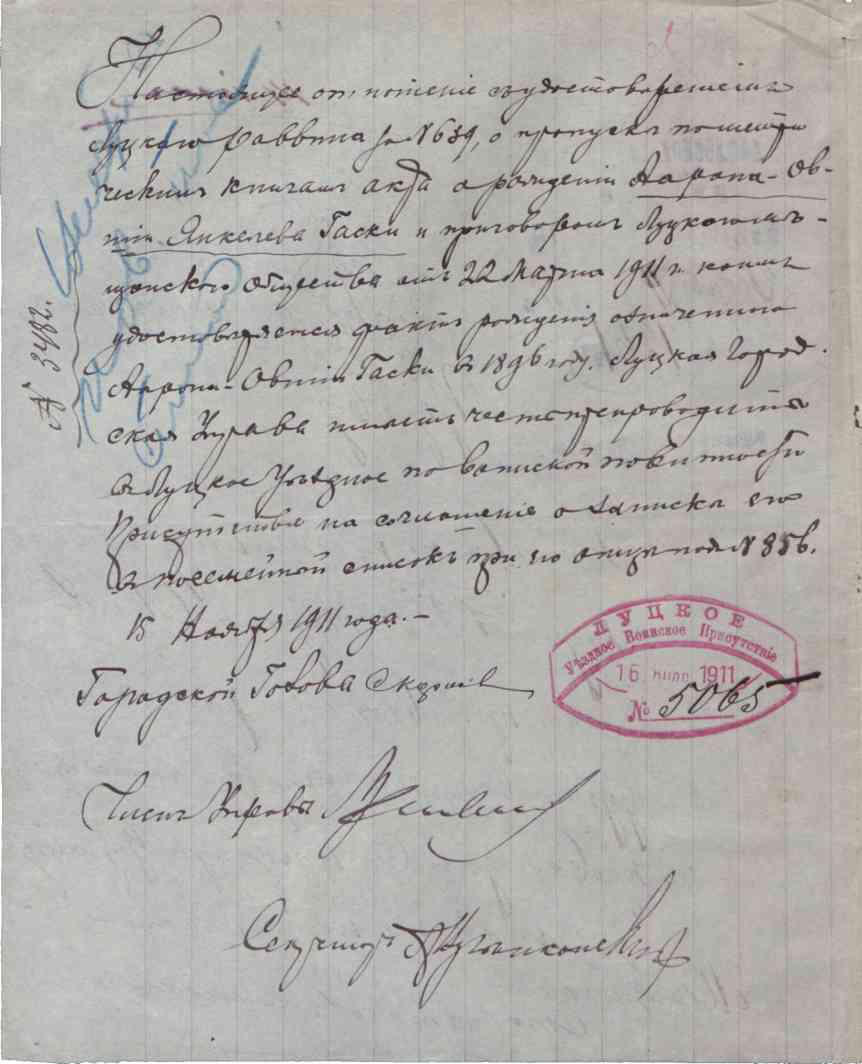 Настоящее отношение съ удостоверениемъ
Луцкого раввина за № 639, о пропуске по метри
ческимъ книгамъ акта о рождении Аарона-Ов-
шии Янкелева Гаски и приговоромъ Луцкого мѣ-
щанского общества отъ 22 Марта 1911 г. коимъ
удостоверяется фактъ рождения означенного
Аарона-Овшии Гаски въ 1896 году. Луцкая Город
ская Управа имѣетъ честь препроводить
въ Луцкое Уѣздное по воинской повинности
Присутствие на соглашение о записке его
въ посемейной списокъ при его отце под № 856.
15 Ноября 1911 года.-
Городской Голова
Членъ Управы
Секретарь
№ 3482.
ЛУЦКОЕ
Уѣздное Воинское Присутствіе
16 НОЯБ 1911
№ 5065